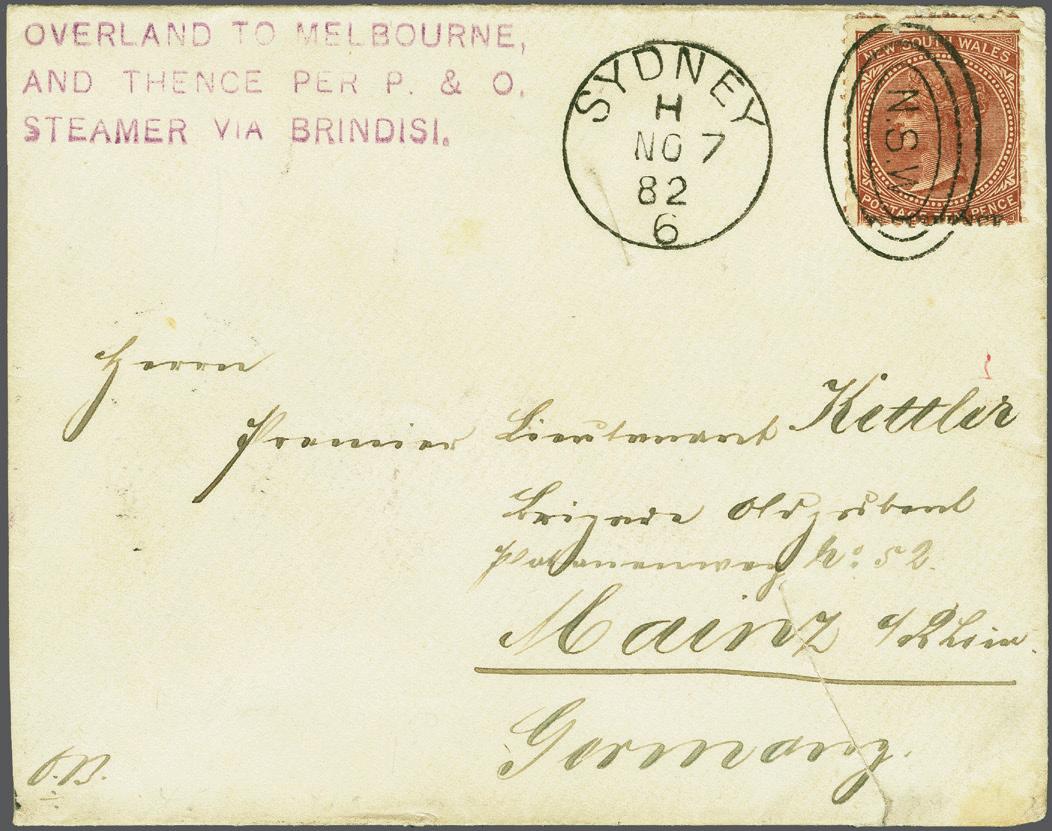 OVERLAND TO MELBOURNE,
AND THENCE PER P. & O.
STEAMER VIA BRINDISI.
SYDNEY
H
NO 7
82
6
NEW SOUTH WALES
N.S.W
POSTAGE PENCE
Herrn
Premier Lieutenant Kettler
Brigade
No: 52.
Mainz a/Rhein.
Germany.